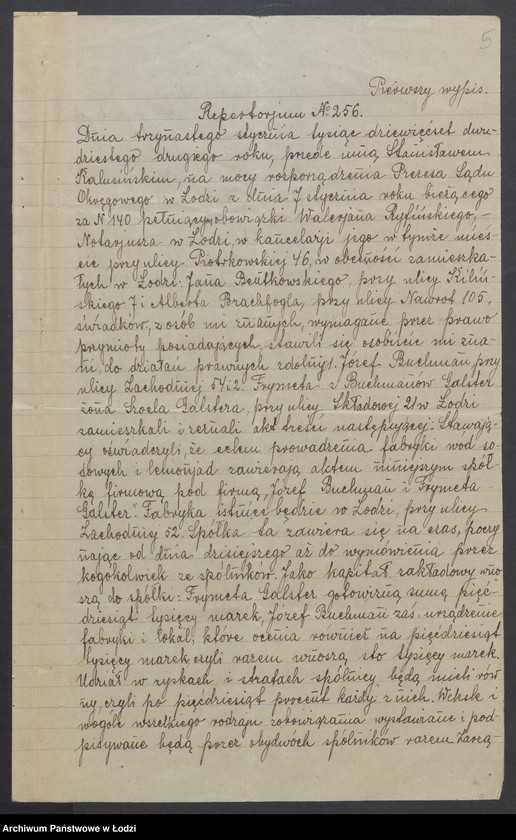 5
Pierwszy wypis.
Repertorjum № 256.
Dnia trzynastego stycznia tysiąc dziewięćset dwu-
dziestego drugiego roku, przede mną Stanisławem
Kalusińskim, na mocy rozporządzenia Prezesa Sądu
Okręgowego w Łodzi z dnia 7 stycznia roku bieżącego
za N 140 pełniącym obowiązki Walerjana Ryfińskiego, –
Notarjusza w Łodzi, w kancelarji jego w tymże mieś-
cie przy ulicy Piotrkowskiej 46, w obecności zamieszka-
łych w Łodzi: Jana Beutkowskiego, przy ulicy Kiliń-
skiego 7 i Alberta Brachfogla, przy ulicy Nawrot 105,
świadków, z osób mi znanych, wymagane przez prawo
przymioty posiadających, stawili się osobiście mi zna-
ni, do działań prawnych zdolni: 1. Józef Buchman, przy
ulicy Zachodniej 54 i 2. Frymeta z Buchmanów Galster
żona Galstera, przy ulicy Składowej 21 w Łodzi
zamieszkali i zeznali akt treści następującej: Stawają-
cy oświadczyli, że celem prowadzenia fabryki wód so-
dowych i lemonjad zawierają aktem niniejszym spół-
kę firmową pod firmą „Józef Buchman i Frymeta
Galster". Fabryka istnieć będzie w Łodzi, przy ulicy
Zachodniej 52. Spółka ta zawiera się na czas, poczy-
nając od dnia dzisiejszego aż do wymówienia przez
kogokolwiek ze spólników. Jako kapitał zakładowy wno-
szą do spółki: Frymeta Galster gotowizną sumę pięć-
dziesiąt tysięcy marek, Józef Buchman zaś urządzenie
fabryki i lokal, które ocenia również na pięćdziesiąt
tysięcy marek czyli razem wnoszą sto tysięcy marek.
Udział w zyskach i stratach spólnicy będą mieli rów-
ny, czyli po pięćdziesiąt procent każdy z nich. Weksle i
wogóle wszelkiego rodzaju zobowiązania wystawiane i pod-
pisywane będą przez obydwóch spólników razem. Zarzą-
Archiwum Państwowe w Łodzi